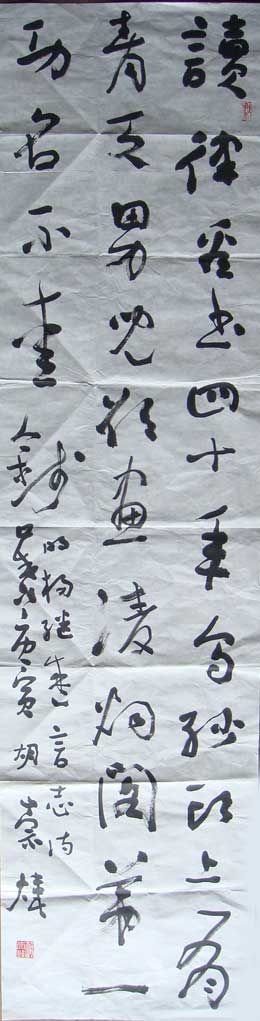 讀律看书四十年乌纱頭上有
青天男兒欲畫凌烟閣第一
功名不爱錢
明楊继盛言志诗
寅 胡崇煒